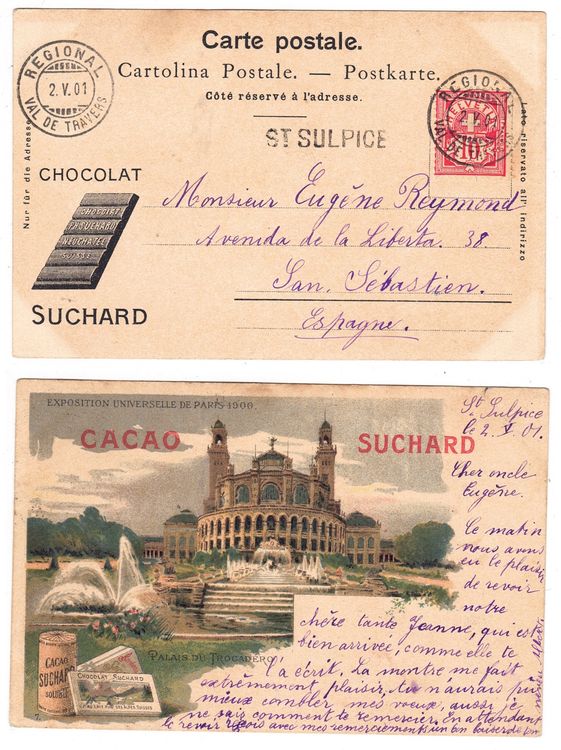 Carte postale.
Cartolina Postale. — Postkarte.
Côté réservé à l'adresse.
REGIONAL
2.V.01
VAL DE TRAVERS
REGIONAL
2.V.01
VAL DE TRAVERS
HELVETIA
10
ST SULPICE
Nur für die Adresse
Lato riservato all' indirizzo
CHOCOLAT
CHOCOLAT
PH.SUCHARD
NEUCHATEL
SUISSE
SUCHARD
Monsieur Eugène Reymond
Avenida de la Liberta. 38
San. Sébastien.
Espagne.
EXPOSITION UNIVERSELLE DE PARIS 1900.
CACAO SUCHARD
PALAIS DU TROCADERO
CACAO
SUCHARD
SOLUBLE
CHOCOLAT SUCHARD
St Sulpice
le 2. V. 01.
Cher oncle
Eugène.
Ce matin
nous avons
eu le plaisir
de revoir
notre
chère tante Jeanne, qui est
bien arrivée, comme elle te
l'a écrit. La montre me fait
extrêmement plaisir, tu n'aurais pu
mieux combler mes voeux, aussi je
ne sais comment te remercier. En attendant
te revoir reçois avec mes remerciements, un bon baiser de ton